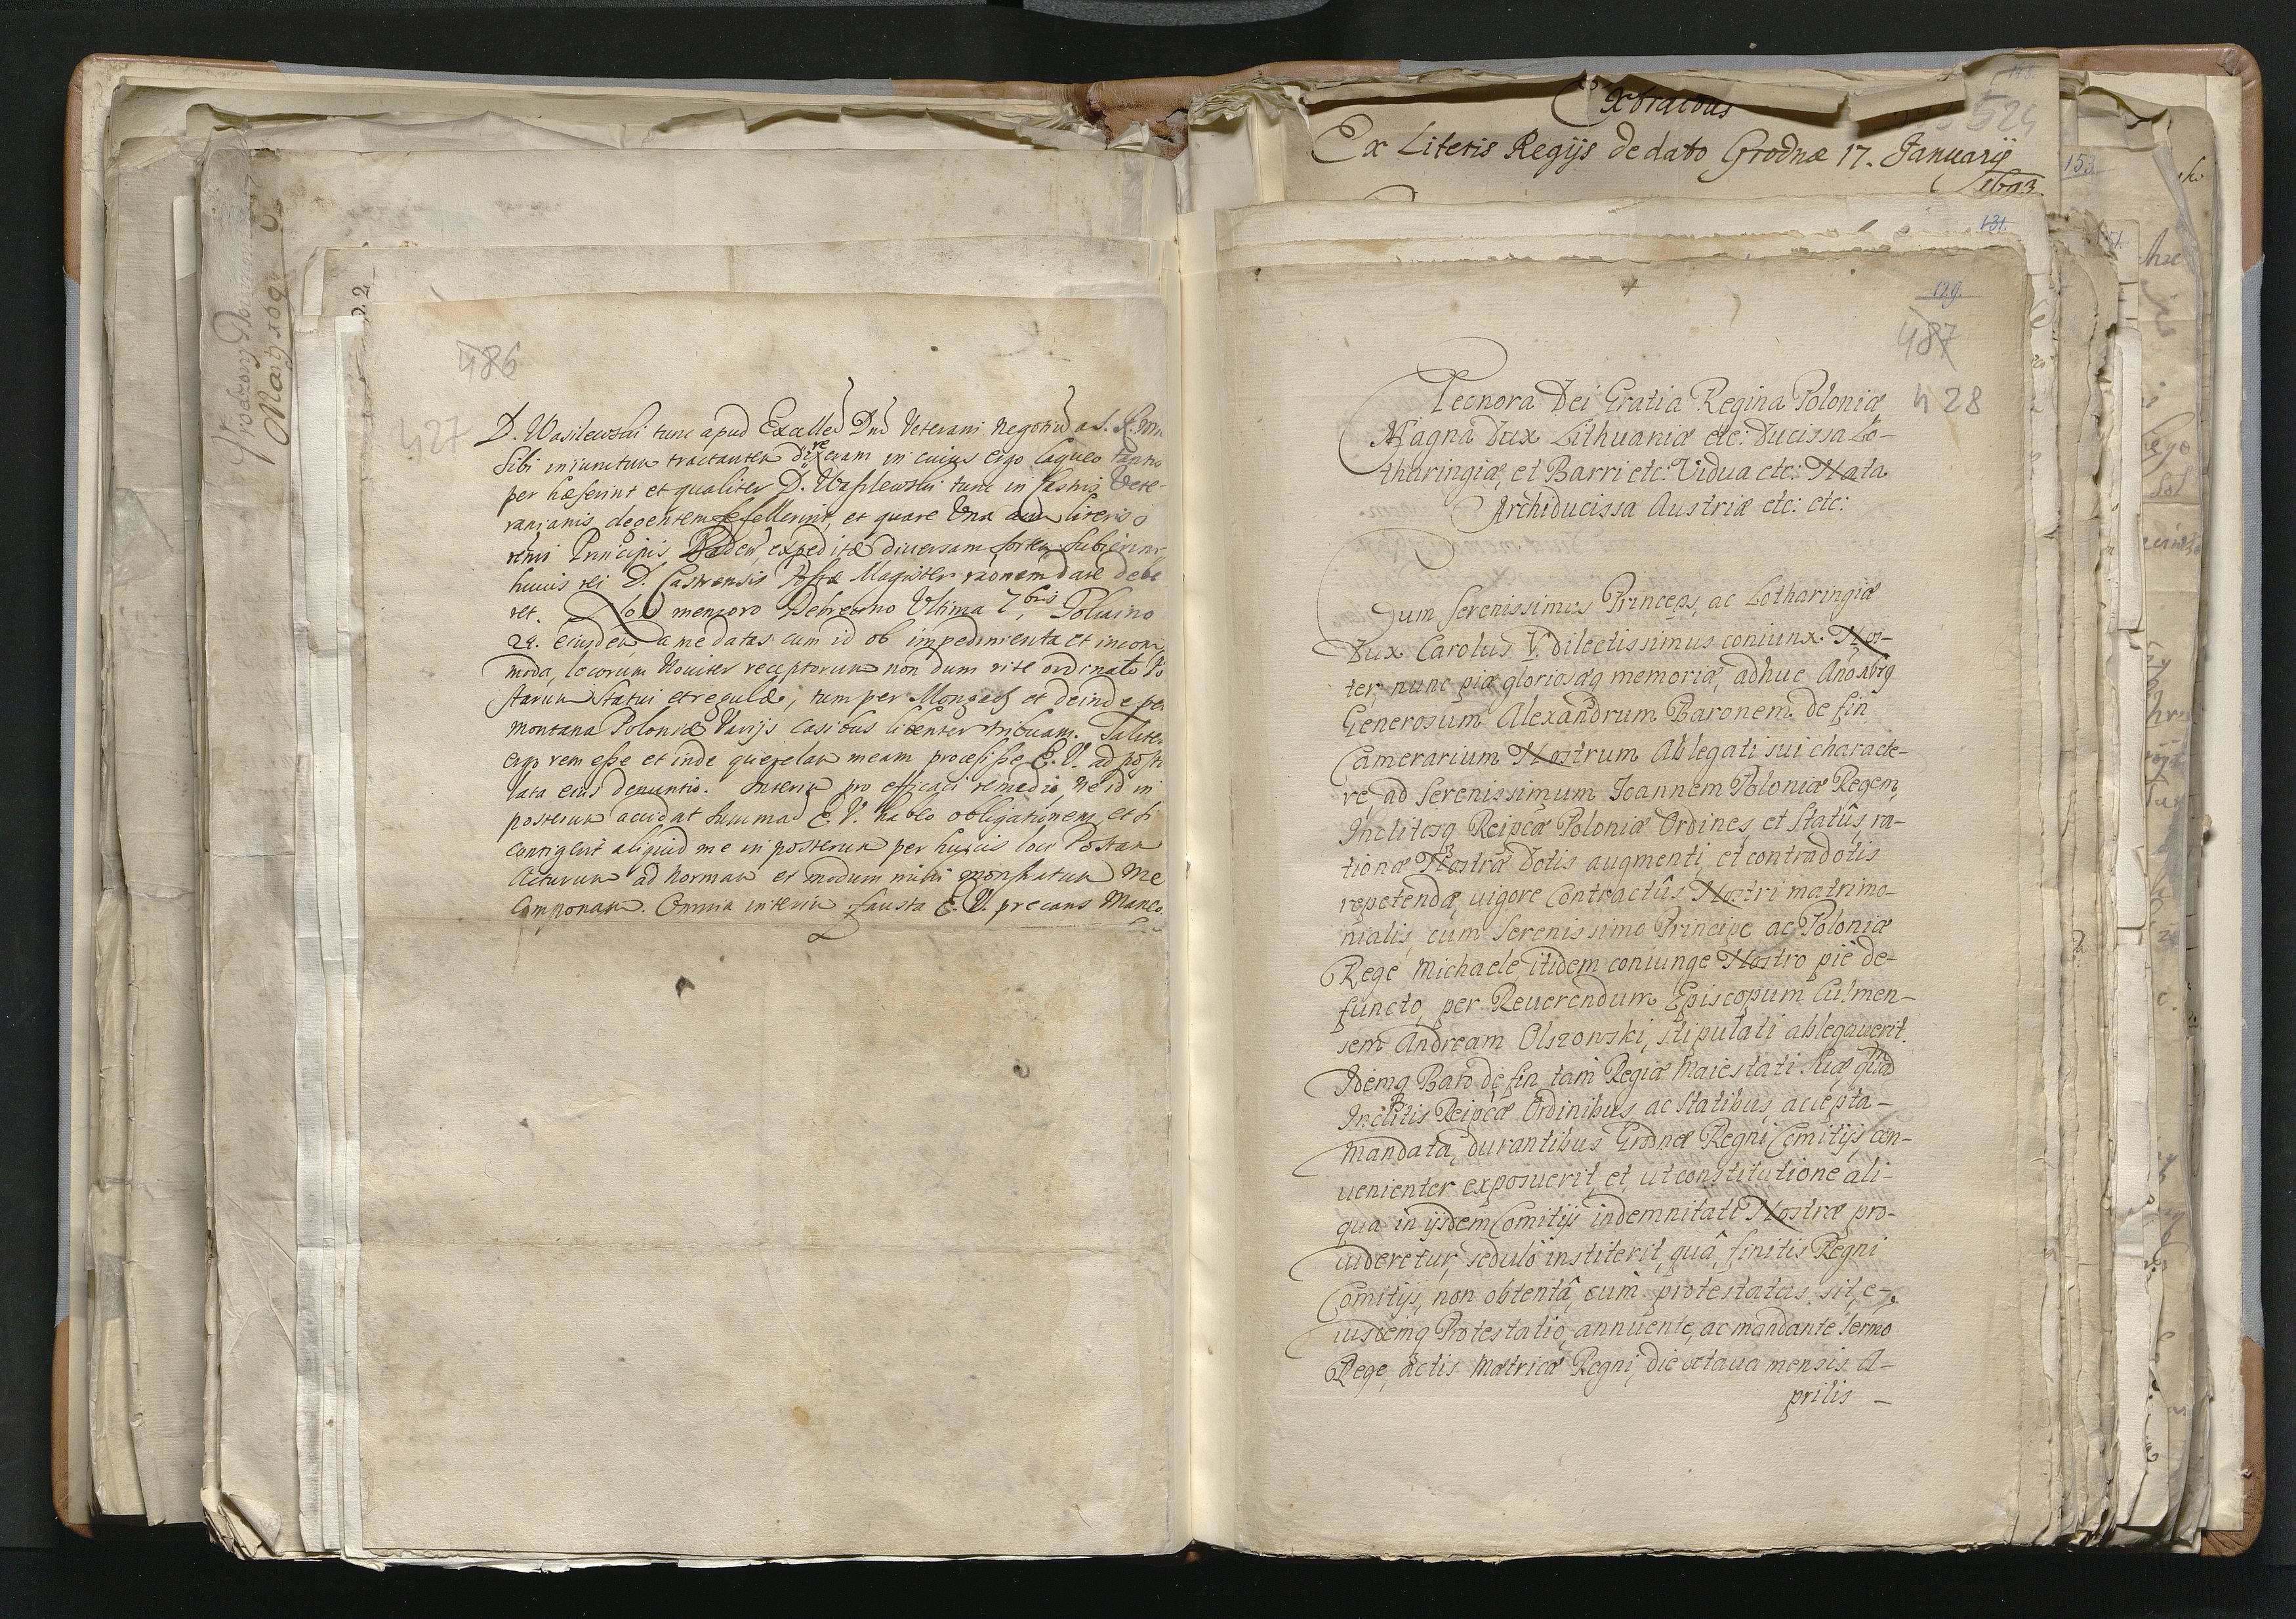 486
427
D. Wasilewski tunc apud Excell. Dnū Veterani negotiū a S. R.
sibi iniunctum tractantem dixeram in cuius ergo laqueo tantis
per hæserint et qualiter D. Wasilewski tunc in castris Vete-
ranianis degentem fefellerint, et quare Una cum literis
Principis Baden expeditæ diuersam sortem subierint
huius rei D. Castrensis Postæ Magister raonem dare debe
ret. No mensoro Debreczino Ultima 7bris,
29. eiusdem a me datas cum id ob impedimenta et incom
moda, locorum Nouiter receptorum non dum rite ordinato Po
starum statui et regulæ, tum per et deinde per
montana Poloniæ Varijs casibus libenter tribuam. Taliter
ergo rem esse et inde querelam meam procesisse E. V. ad postu
lata eius denuntio. Interim pro efficaci remedio, ne id in
posterum accidat summā E. V. habeo obligationem, et si
contigerit aliquid me in posterum per huius loci Postam
Acturum ad Normam et modum mihi monstratum Me
Componam. Omnia interim fausta E. V. precans Maneo
Extractus
Ex Literis Regijs de dato Grodnæ 17. Januarij
1693
148.
524
153.
131.
129.
487
428
Leonora Dei Gratia Regina Poloniæ,
Magna Dux Lithuaniæ etc: Ducissa Lo-
tharingiæ, et Barri etc: Vidua etc: Nata
Archiducissa Austriæ etc: etc:
Cum Serenissimus Princeps, ac Lotharingiæ
Dux Carolus V. dilectissimus coniunx Nos-
ter, nunc piæ gloriosæq memoriæ, adhuc Ano
Generosum Alexandrum Baronem de fin
Camerarium Nostrum Ablegati sui characte-
re ad Serenissimum Joannem Poloniæ Regem,
Inclitosq Reipcæ Poloniæ Ordines, et Statûs, ra-
tione Nostræ Dotis augmenti, et contradotis
repetendæ, uigore Contractûs Nostri matrimo-
nialis, cum Serenissimo Principe ac Poloniæ
Rege Michaele, itidem coniunge Nostro piè de-
functo, per Reuerendum Episcopum Culmen-
sem Andream Olszonski, stipulati ablegauerit.
Idemq Baro de fin tam Regiæ Maiestati suæ, quā
Inclitis Reipcæ Ordinibus, ac Statibus, accepta-
mandata, durantibus Grodnæ Regni Comitijs con-
uenienter exposuerit, et, ut constitutione ali-
qua in ijsdem Comitijs indemnitati Nostræ pro-
uideretur, sedulò institerit, quâ, finitis Regni
Comitijs, non obtentâ, cum protestatus sit, e-
iusdemq Protestatio, annuente, ac mandante Sermo
Rege, actis Metricæ Regni, die octaua mensis A-
prilis -